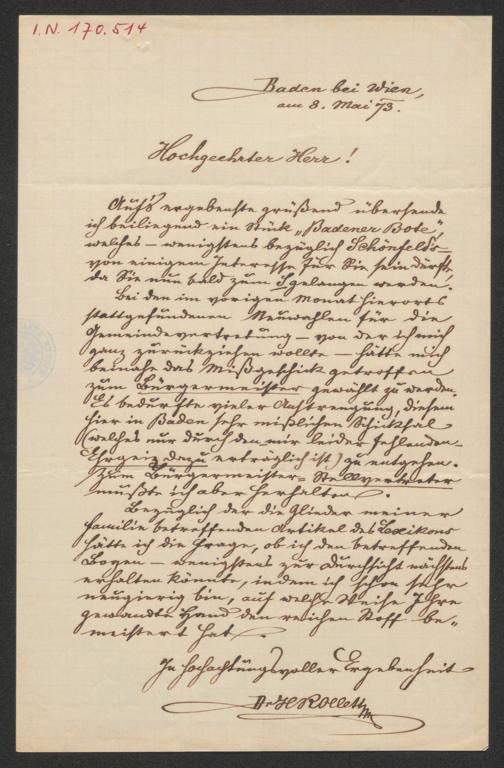 I.N. 170.514
Baden bei Wien,
am 8. Mai 73.
Hochgeehrter Herr!
Auf's ergebenste grüßend übersende
ich beiliegend ein Stück „Badener Bote“,
welches – wenigstens bezüglich Schönfeld's –
von einigem Interesse für Sie sein dürfte,
da Sie nun bald zum S gelangen werden.
Bei den im vorigen Monat hierorts
stattgefundenen Neuwahlen für die
Gemeindevertretung – von der ich mich
ganz zurückziehen wollte – hätte mich
beinahe das Mißgeschick getroffen
zum Bürgermeister gewählt zu werden.
Es bedurfte vieler Anstrengung, diesem
hier in Baden sehr mißlichen Schicksal
(welches nur durch den mir leider fehlenden
Ehrgeiz dazu erträglich ist) zu entgehen.
Zum Bürgermeister-Stellvertreter
mußte ich aber herhalten.
Bezüglich der die Glieder meiner
Familie betreffenden Artikel des Lexikons
hätte ich die Frage, ob ich den betreffenden
Bogen – wenigstens zur Durchsicht nächstens
erhalten könnte, indem ich schon sehr
neugierig bin, auf welche Weise Ihre
gewandte Hand den reichen Stoff be-
meistert hat.
In hochachtungsvoller Ergebenheit
Dr HRollett